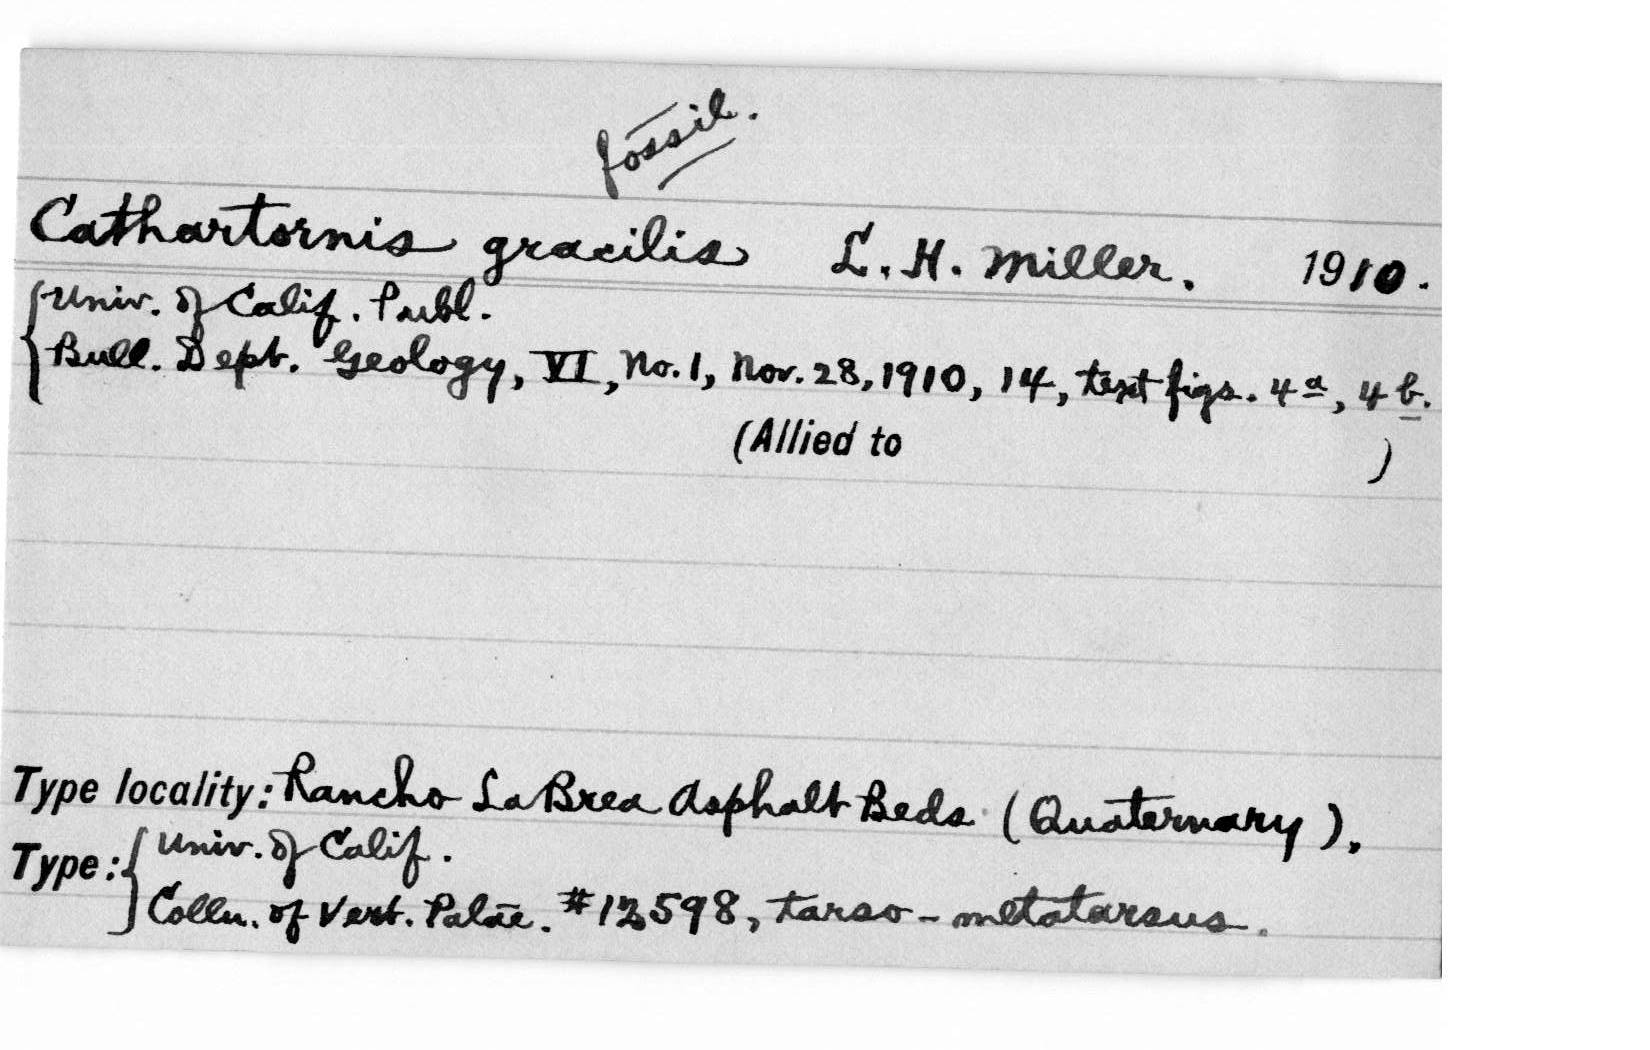 fossil.
Cathartornis gracilis L. H. Miller. 1910.
Univ. of Calif. Publ.
Bull. Dept. Geology, VI, No. 1, Nov. 28, 1910, 14, text figs. 4a, 4b.
(Allied to )
Type locality: Rancho La Brea Asphalt Beds (Quaternary),
Type: Univ. of Calif.
Colln. of Vert. Palae. #12598, tarso-metatarsus.